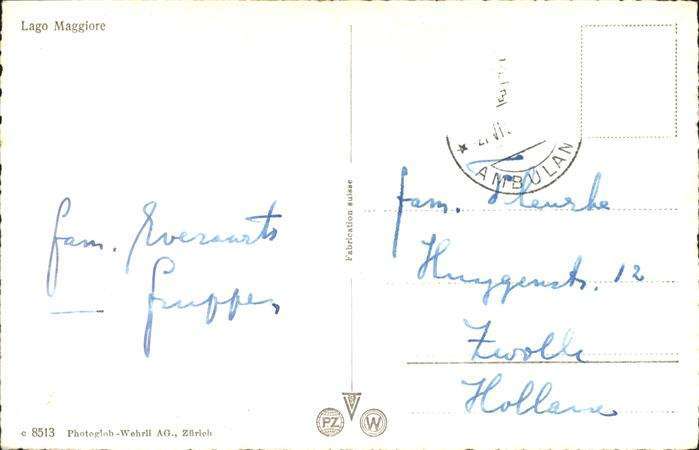 Lago Maggiore
AMBULAN
fam. Everaarts
fam.
Huygenstr. 12
Zwolle
Holland
Fabrication suisse
PZ W
c 8513 Photoglob-Wehrli AG., Zürich